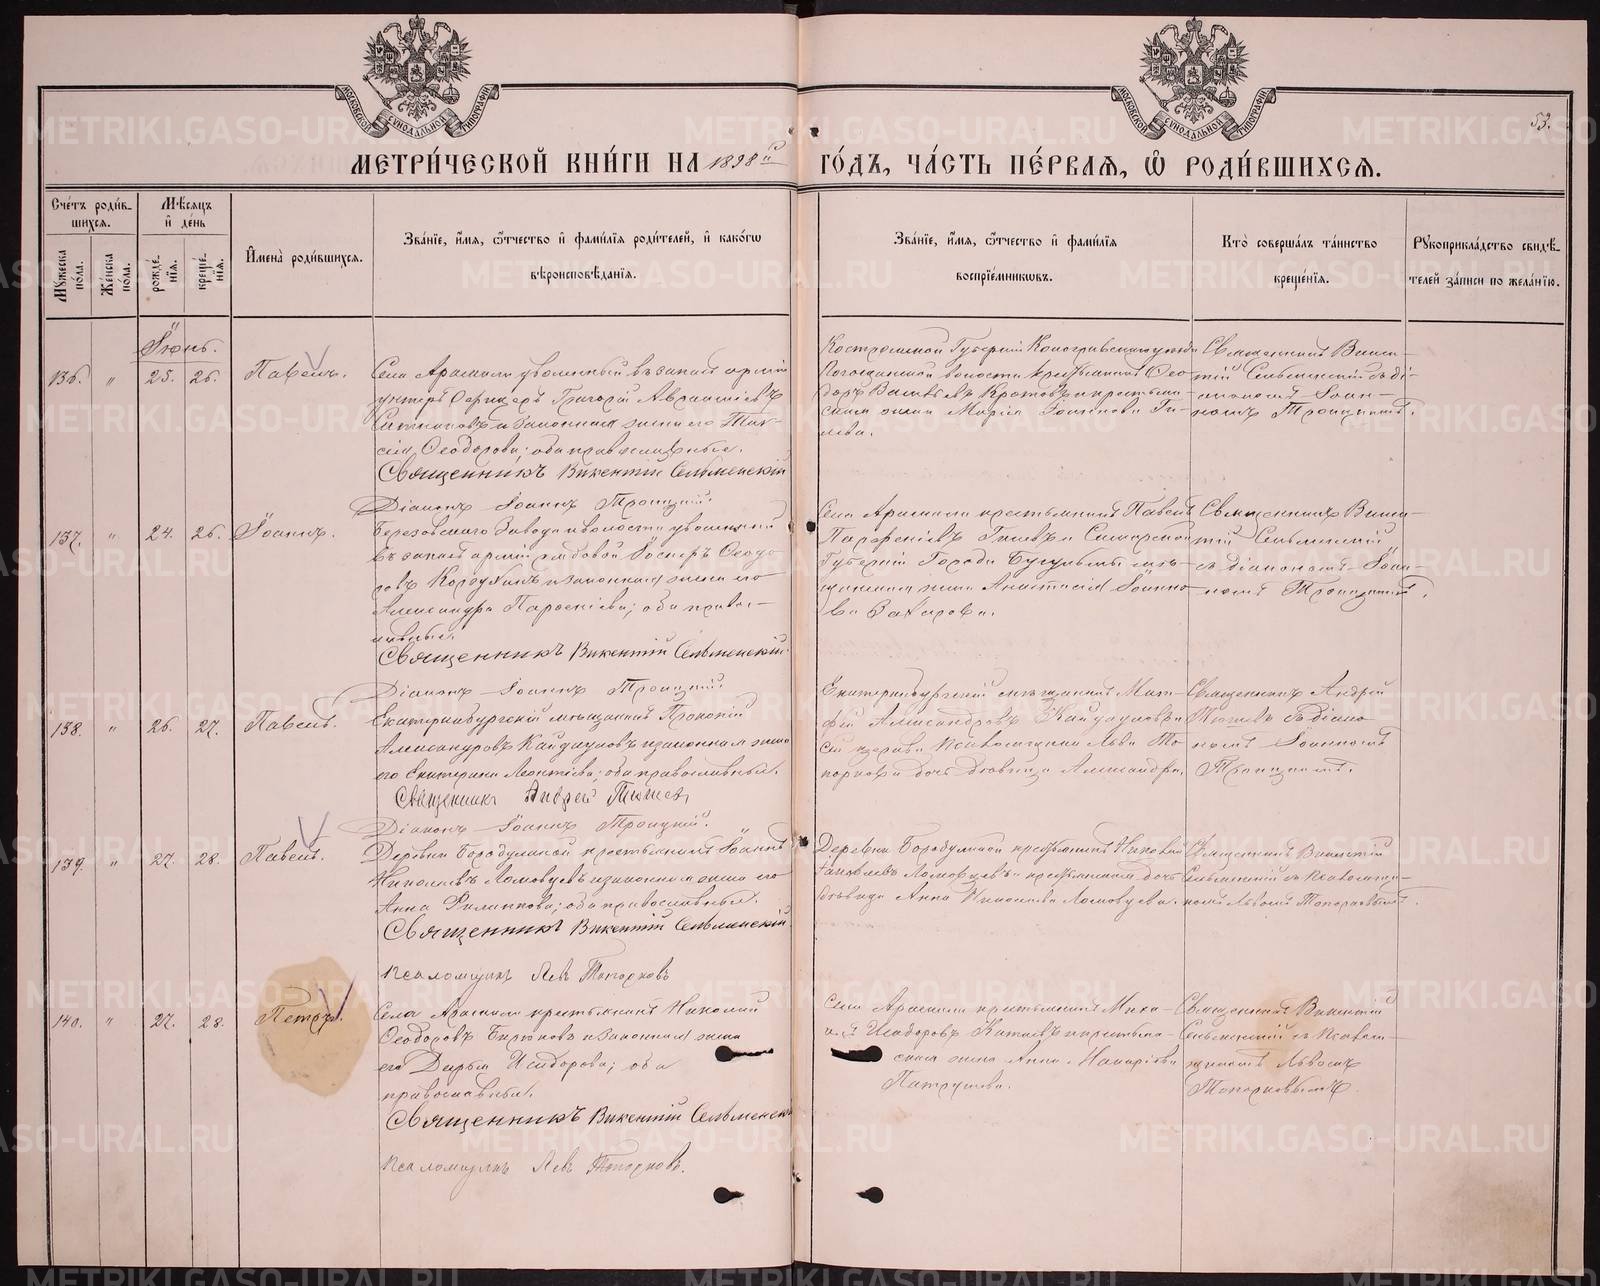 МЕТРИ́ЧЕСКОЙ КНИ́ГИ НА 1898й ГО́ДЪ, ЧА́СТЬ ПЕ́РВАЯ, Ѡ РОДИ́ВШИХСЯ.
53.
МОСКОВСКОЙ СѴНОДАЛЬНОЙ ТИПОГРАФІИ
МОСКОВСКОЙ СѴНОДАЛЬНОЙ ТИПОГРАФІИ
Сче́тъ роди́в-
шихся.
Мꙋжеска по́ла.
Же́нска по́ла.
Мѣ́сяцъ
и де́нь
рожде́-
нія.
креще́-
нія.
Имена̀ роди́вшихся.
Зва́ніе, и́мя, ѻ҆́тчество и фами́лія роди́телей, и како́гѡ
вѣроисповѣ́данія.
Зва́ніе, и́мя, ѻ҆́тчество и фами́лія
воспріе́мникѡвъ.
Кто̀ соверша́лъ та́инство
креще́нія.
Рꙋкоприкла́дство свидѣ́-
телей за́писи по жела́нію.
Іюнь.
136. " 25. 26. Павелъ.
Села Арамили уволенный въ запасъ арміи
унтеръ Офицеръ Григорій
и законная жена его
Ѳеодорова; оба православные.
Священникъ Викентій Сельменскій
Діаконъ Іоаннъ Троицкій.
Костромской Губерніи Кологривскаго уѣзда
волости крестьянинъ Ѳео-
доръ и крестьян-
ская жена Марія
Священникъ Викен-
тій Сельменскій съ ді-
акономъ Іоан-
номъ Троицкимъ.
137. " 24. 26. Іоаннъ.
Березовскаго Завода и волости уволенный
въ запасъ арміи рядовой Ѳеодо-
ровъ и законная жена его
Александра; оба правос-
лавные.
Священникъ Викентій Сельменскій.
Діаконъ Іоаннъ Троицкій.
Села Арамили крестьянинъ Павелъ
и Самарской
Губерніи Города Бугульмы мѣ-
щанская жена Анастасія Іоанно-
ва Захарова.
Священникъ Викен-
тій Сельменскій
съ діакономъ Іоан-
номъ Троицкимъ.
138. " 26. 27. Павелъ.
Екатеринбургскій мѣщанинъ Прокопій
Александровъ Кайдауловъ и законная жена
его Екатерина Леонтіева; оба православные.
Священникъ Андрей
Діаконъ Іоаннъ Троицкій.
Екатеринбургскій мѣщанинъ Мат-
ѳій Александровъ Кайдауловъ и
церкви псаломщика Льва То-
поркова дочь дѣвица Александра.
Священникъ Андрей
съ діако-
номъ Іоанномъ
Троицкимъ.
139. " 27. 28. Павелъ.
Деревни Бородулиной крестьянинъ Іоаннъ
Николаевъ Ломовцевъ и законная жена его
Анна Филиппова; оба православные.
Священникъ Викентій Сельменскій
Псаломщикъ Левъ Топорковъ
Деревни Бородулиной крестьянинъ Николай
Яковлевъ Ломовцевъ и крестьянская дочь
дѣвица Анна Николаева Ломовцева.
Священникъ Викентій
Сельменскій съ псаломщи-
комъ Львомъ Топорковымъ.
140. " 27. 28. Петръ.
Села Арамили крестьянинъ Николай
Ѳеодоровъ Бирюковъ и законная жена
его Дарья Исидорова; оба
православные.
Священникъ Викентій Сельменскій
Псаломщикъ Левъ Топорковъ.
Села Арамили крестьянинъ Миха-
илъ Исидоровъ и крестьян-
ская жена Анна Макаріева
Патрушева.
Священникъ Викентій
Сельменскій съ псалом-
щикомъ Львомъ
Топорковымъ.
METRIKI.GASO-URAL.RU